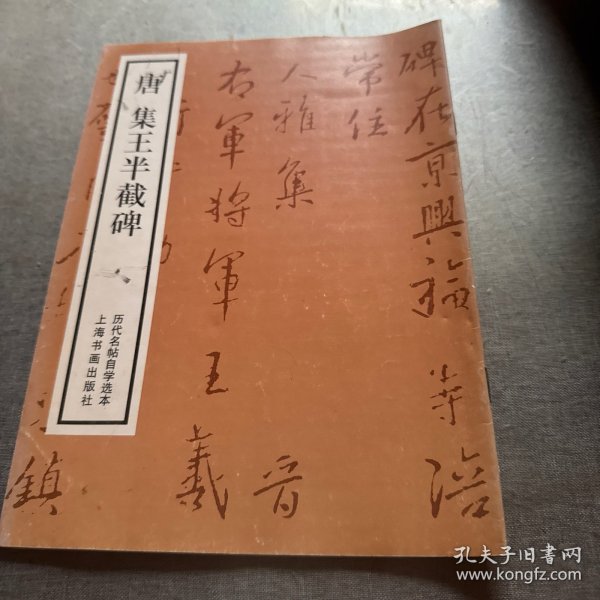 唐 集王半截碑
历代名帖自学选本
上海书画出版社
碑在京興福寺陪
常住
人雅集
晋
右軍将軍王羲
鎮
孔夫子旧书网
www.kongfz.com